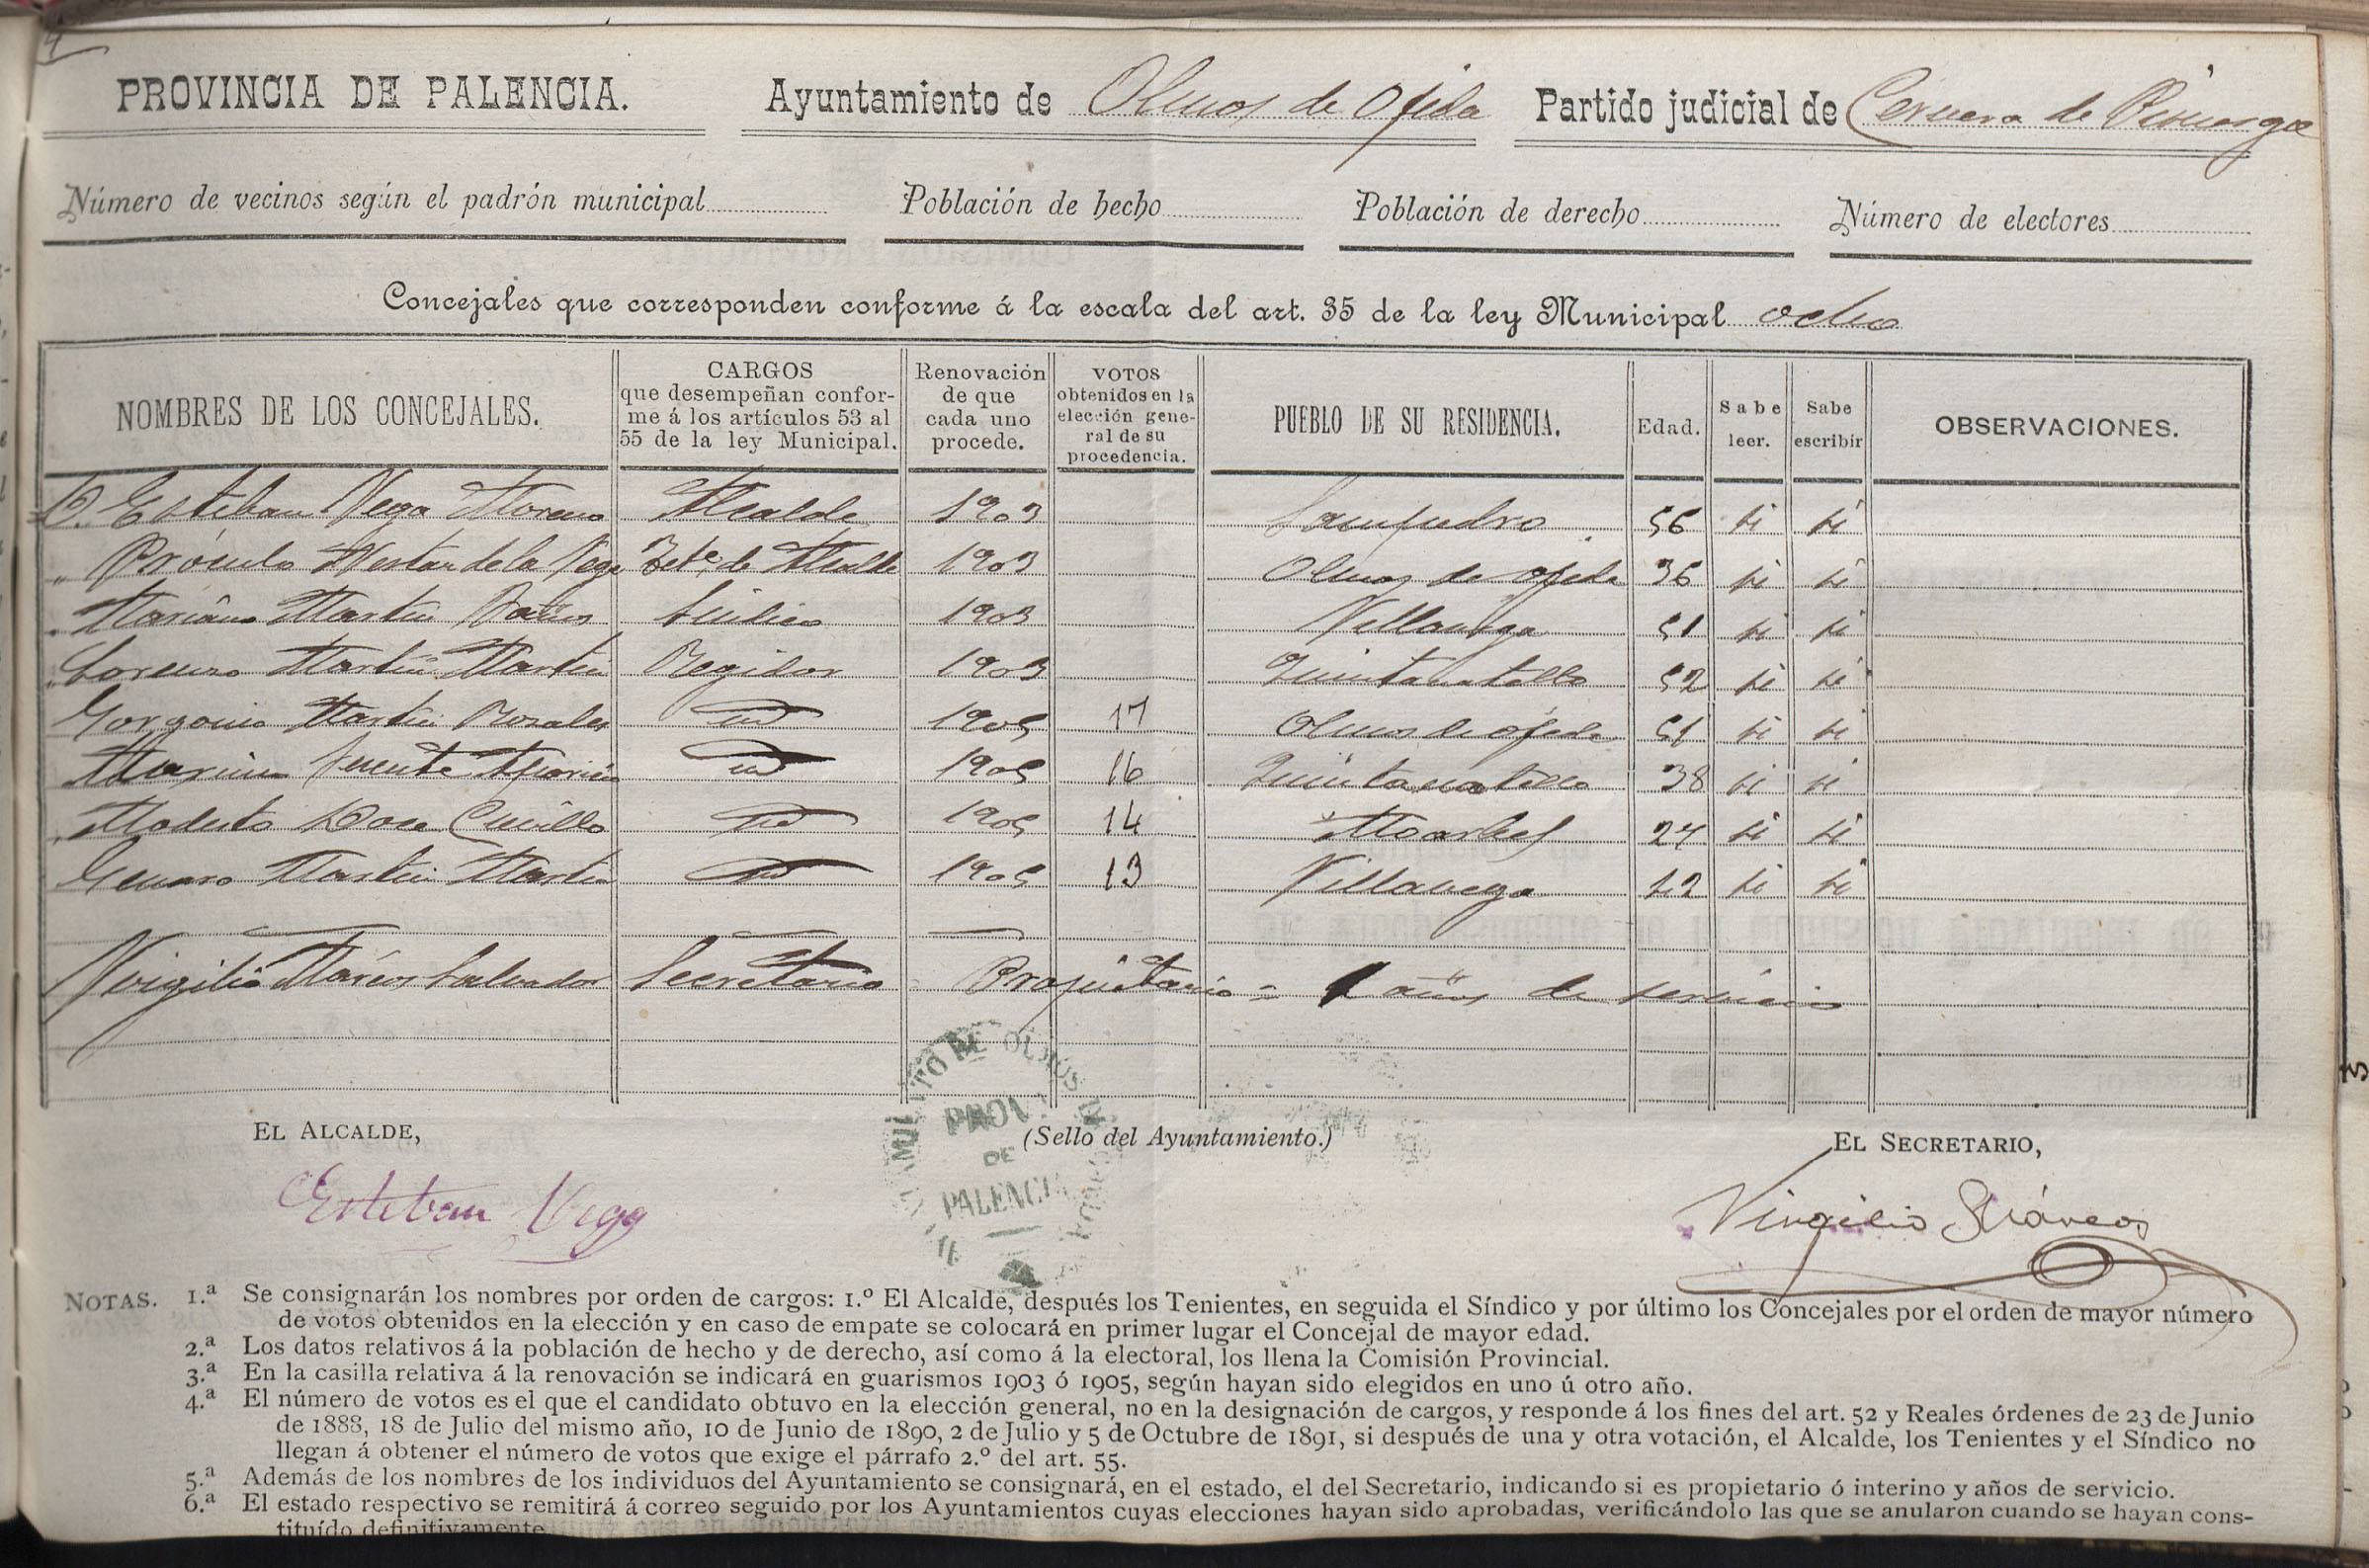 PROVINCIA DE PALENCIA. Ayuntamiento de Olmos de Ojeda Partido judicial de Cervera de Pisuerga
Número de vecinos según el padrón municipal Población de hecho Población de derecho Número de electores
Concejales que corresponden conforme á la escala del art. 35 de la ley Municipal ocho
NOMBRES DE LOS CONCEJALES.
CARGOS
que desempeñan confor-
me á los artículos 53 al
55 de la ley Municipal.
Renovación
de que
cada uno
procede.
VOTOS
obtenidos en la
elección gene-
ral de su
procedencia.
PUEBLO DE SU RESIDENCIA.
Edad.
Sabe
leer.
Sabe
escribir
OBSERVACIONES.
D. Esteban Vega Moreno Alcalde 1903 Sampedro 56 si si
" Próculo de la Vega Tete. de Alcalde 1903 Olmos de Ojeda 36 si si
" Mariano Martín Síndico 1903 Villavega 51 si si
" Lorenzo Martín Martín Regidor 1903 Quintanatello 52 si si
Gorgonio Martín Rosales id 1905 17 Olmos de Ojeda 51 si si
Aparicio id 1905 16 Quintanatello 38 si si
" Modesto id 1905 14 Moarbes 24 si si
" Genaro Martín Martín id 1905 13 Villavega 42 si si
Virgilio Márcos Salvador Secretario = Propietario = años de servicio
EL ALCALDE, (Sello del Ayuntamiento.) EL SECRETARIO,
PROV.
DE
PALENCIA
Esteban Vega Virgilio Márcos
NOTAS. 1.ª Se consignarán los nombres por orden de cargos: 1.º El Alcalde, después los Tenientes, en seguida el Síndico y por último los Concejales por el orden de mayor número
de votos obtenidos en la elección y en caso de empate se colocará en primer lugar el Concejal de mayor edad.
2.ª Los datos relativos á la población de hecho y de derecho, así como á la electoral, los llena la Comisión Provincial.
3.ª En la casilla relativa á la renovación se indicará en guarismos 1903 ó 1905, según hayan sido elegidos en uno ú otro año.
4.ª El número de votos es el que el candidato obtuvo en la elección general, no en la designación de cargos, y responde á los fines del art. 52 y Reales órdenes de 23 de Junio
de 1888, 18 de Julio del mismo año, 10 de Junio de 1890, 2 de Julio y 5 de Octubre de 1891, si después de una y otra votación, el Alcalde, los Tenientes y el Síndico no
llegan á obtener el número de votos que exige el párrafo 2.º del art. 55.
5.ª Además de los nombres de los individuos del Ayuntamiento se consignará, en el estado, el del Secretario, indicando si es propietario ó interino y años de servicio.
6.ª El estado respectivo se remitirá á correo seguido por los Ayuntamientos cuyas elecciones hayan sido aprobadas, verificándolo las que se anularon cuando se hayan cons-
tituído definitivamente